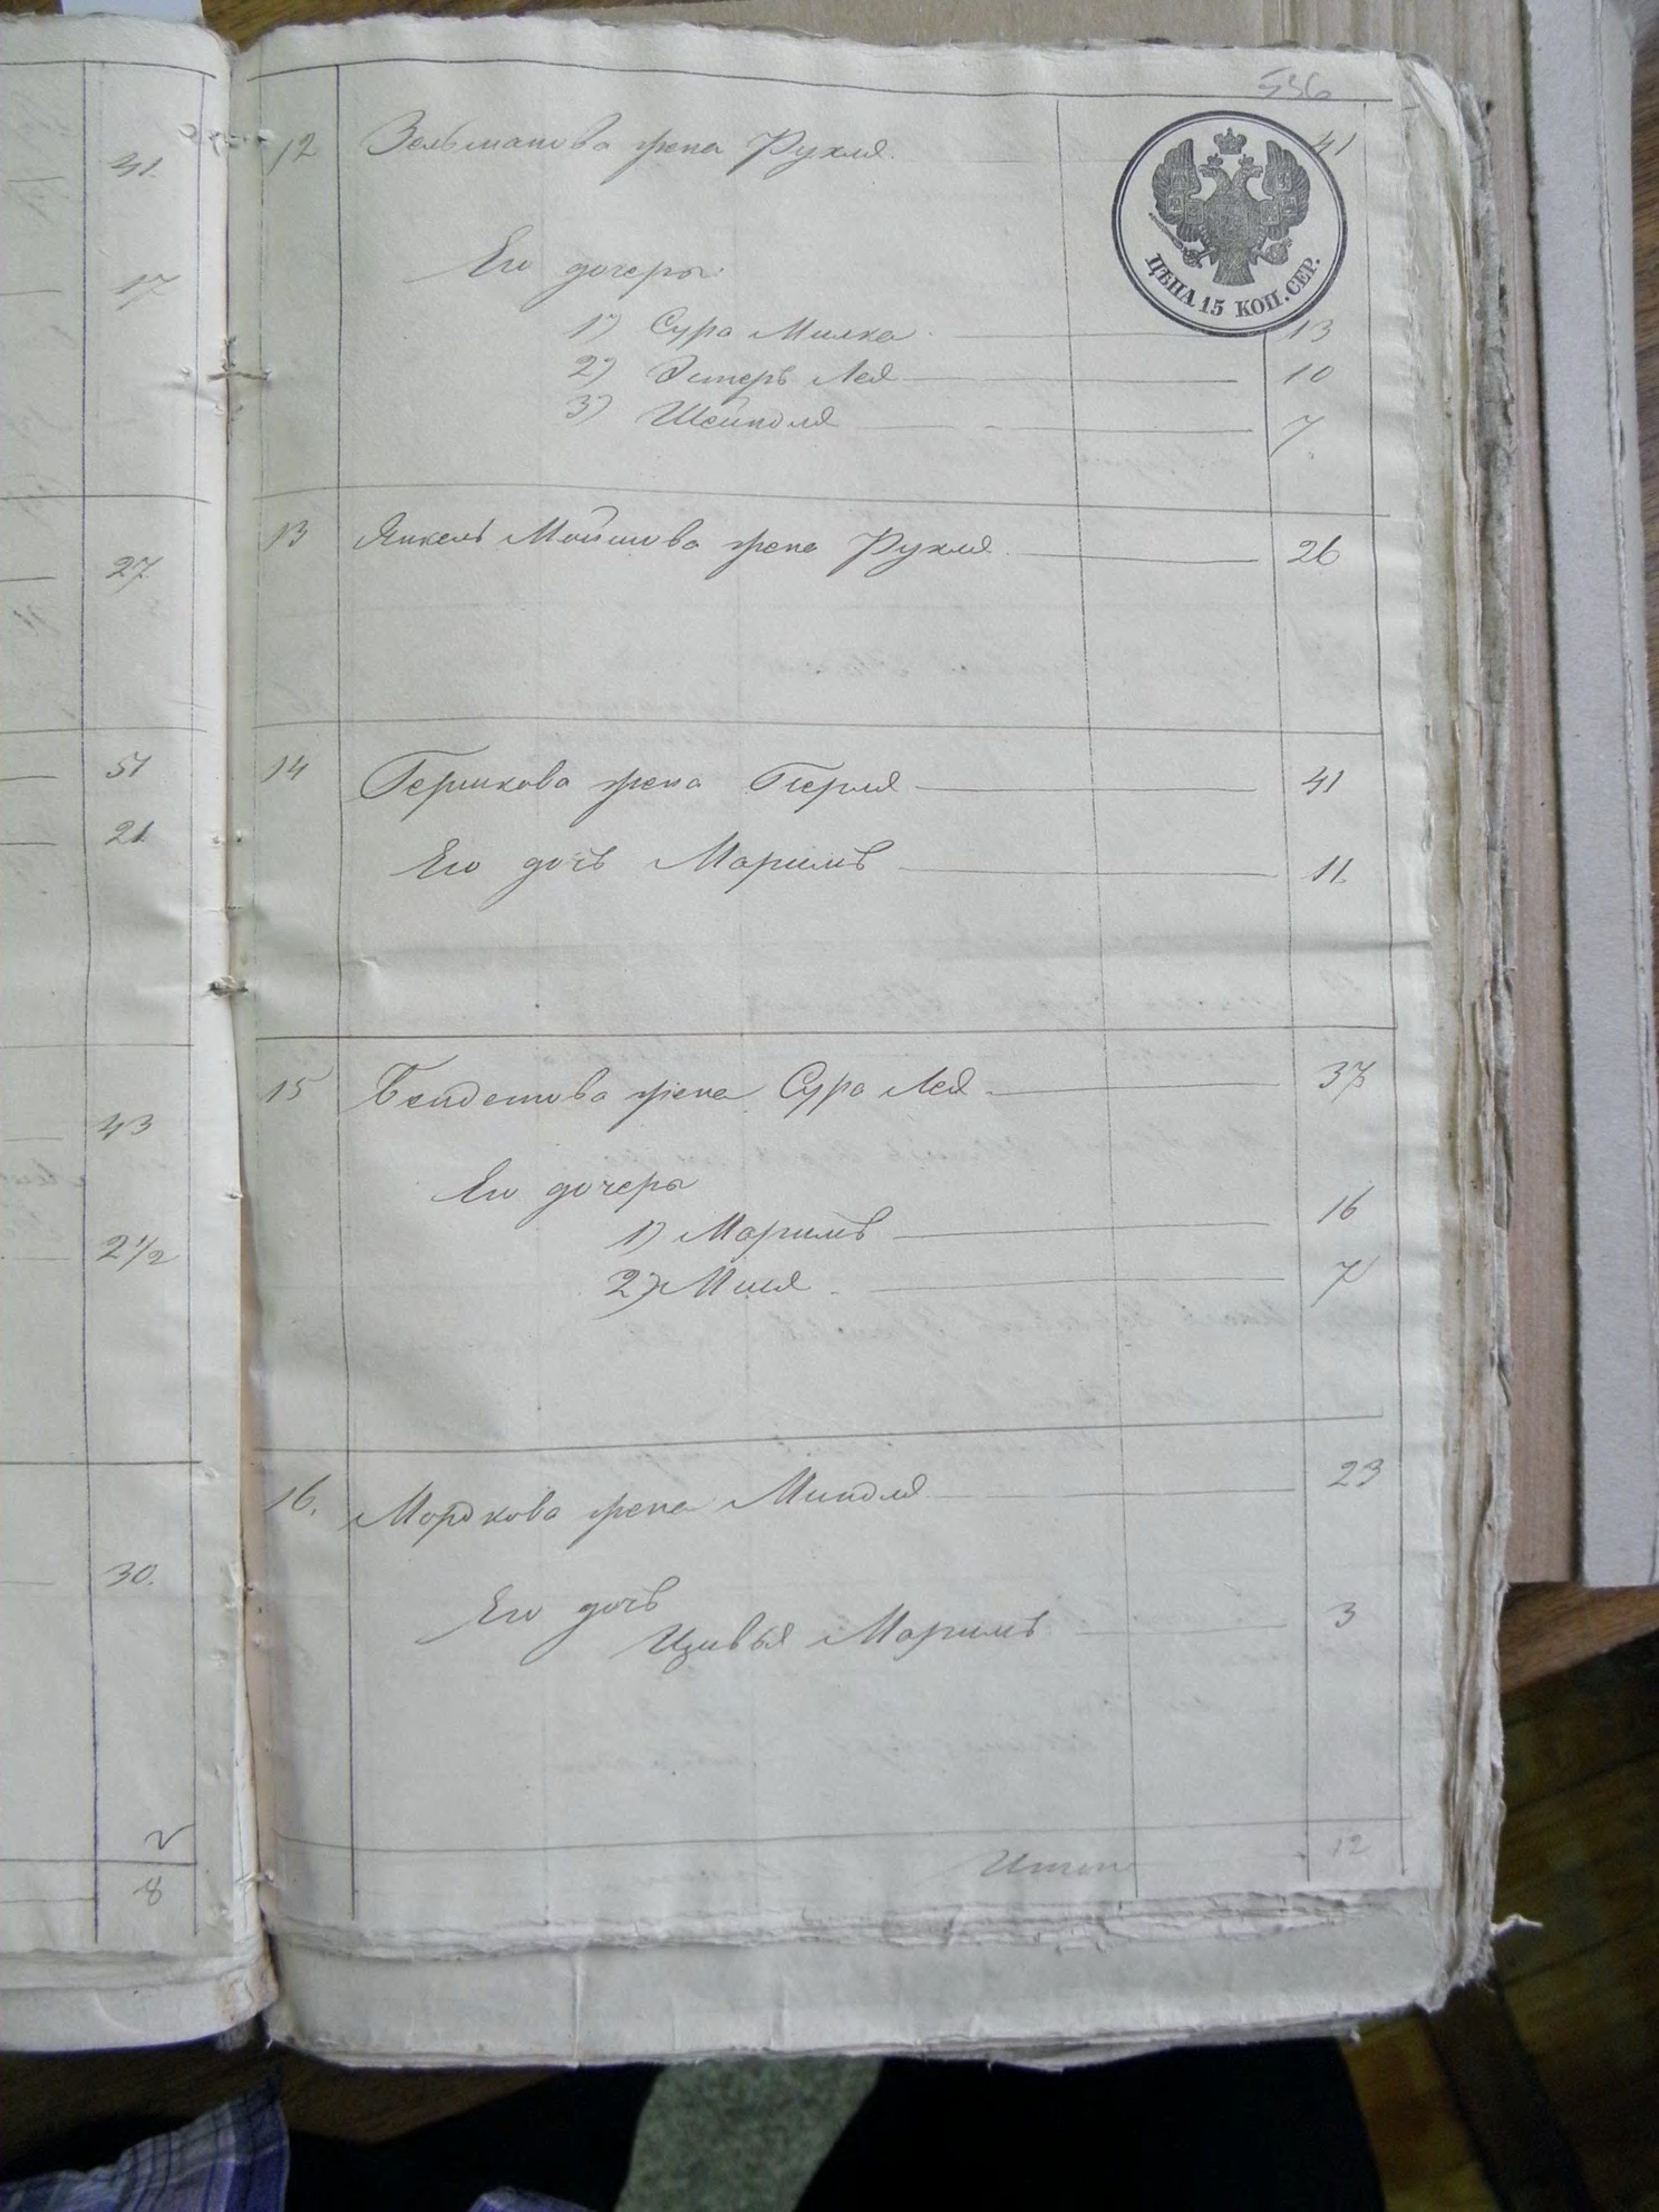 41
17
27
51
21
43
2 1/2
30.
2
8
536
12 Зельманова жена Рухля 41
ЦѢНА 15 КОП. СЕР.
Его дочеры:
1) Сура Милка 13
2) Эстеръ Лея 10
3) Шейндля 7
13 Янкель Мошкова жена Рухля 26
14 Гершкова жена Перля 41
Его дочь Маримъ 11
15 жена Сура Лея 37
Его дочеры
1) Маримъ 16
2) 7
16. Мордкова жена Миндля 23
Его дочь
Цивья Маримъ 3
Итого 12